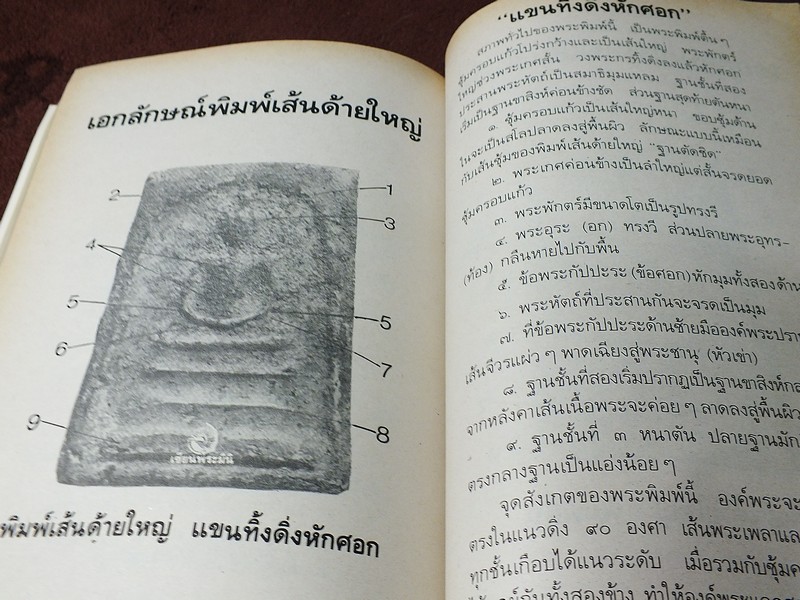 เอกลักษณ์พิมพ์เส้นด้ายใหญ่
1
2
3
4
5
5
6
7
8
9
เซียนพระมณี
พิมพ์เส้นด้ายใหญ่ แขนทิ้งดิ่งหักศอก
"แขนทิ้งดิ่งหักศอก"
สภาพทั่วไปของพระพิมพ์นี้ เป็นพระพิมพ์ตื้น ๆ
ซุ้มครอบแก้วโปร่งกว้างและเป็นเส้นใหญ่ พระพักตร์
ใหญ่ช่วงพระเกศสั้น วงพระกรทิ้งดิ่งลงแล้วหักศอก
ประสานพระหัตถ์เป็นสมาธิมุมแหลม ฐานชั้นที่สอง
เริ่มเป็นฐานขาสิงห์ค่อนข้างชัด ส่วนฐานสุดท้ายตันหนา
๑. ซุ้มครอบแก้วเป็นเส้นใหญ่หนา ขอบซุ้มด้าน
ในจะเป็นสโลปลาดลงสู่พื้นผิว ลักษณะแบบนี้เหมือน
กับเส้นซุ้มของพิมพ์เส้นด้ายใหญ่ "ฐานตัดชิด"
๒. พระเกศค่อนข้างเป็นลำใหญ่แต่สั้นจรดยอด
ซุ้มครอบแก้ว
๓. พระพักตร์มีขนาดโตเป็นรูปทรงรี
๔. พระอุระ (อก) ทรงวี ส่วนปลายพระอุทร-
(ท้อง) กลืนหายไปกับพื้น
๕. ข้อพระกัปปะระ (ข้อศอก) หักมุมทั้งสองด้าน
๖. พระหัตถ์ที่ประสานกันจะจรดเป็นมุม
๗. ที่ข้อพระกัปปะระด้านซ้ายมือองค์พระปรา
เส้นจีวรแผ่ว ๆ พาดเฉียงสู่พระชานุ (หัวเข่า)
๘. ฐานชั้นที่สองเริ่มปรากฏเป็นฐานขาสิงห์
จากหลังคาเส้นเนื้อพระจะค่อย ๆ ลาดลงสู่พื้นผิว
๙. ฐานชั้นที่ ๓ หนาตัน ปลายฐานมัก
ตรงกลางฐานเป็นแอ่งน้อย ๆ
จุดสังเกตของพระพิมพ์นี้ องค์พระจะ
ตรงในแนวดิ่ง ๙๐ องศา เส้นพระเพลาแล
ทุกชั้นเกือบได้แนวระดับ เมื่อรวมกับซุ้มค
กับทั้งสองข้าง ทำให้องค์พระ